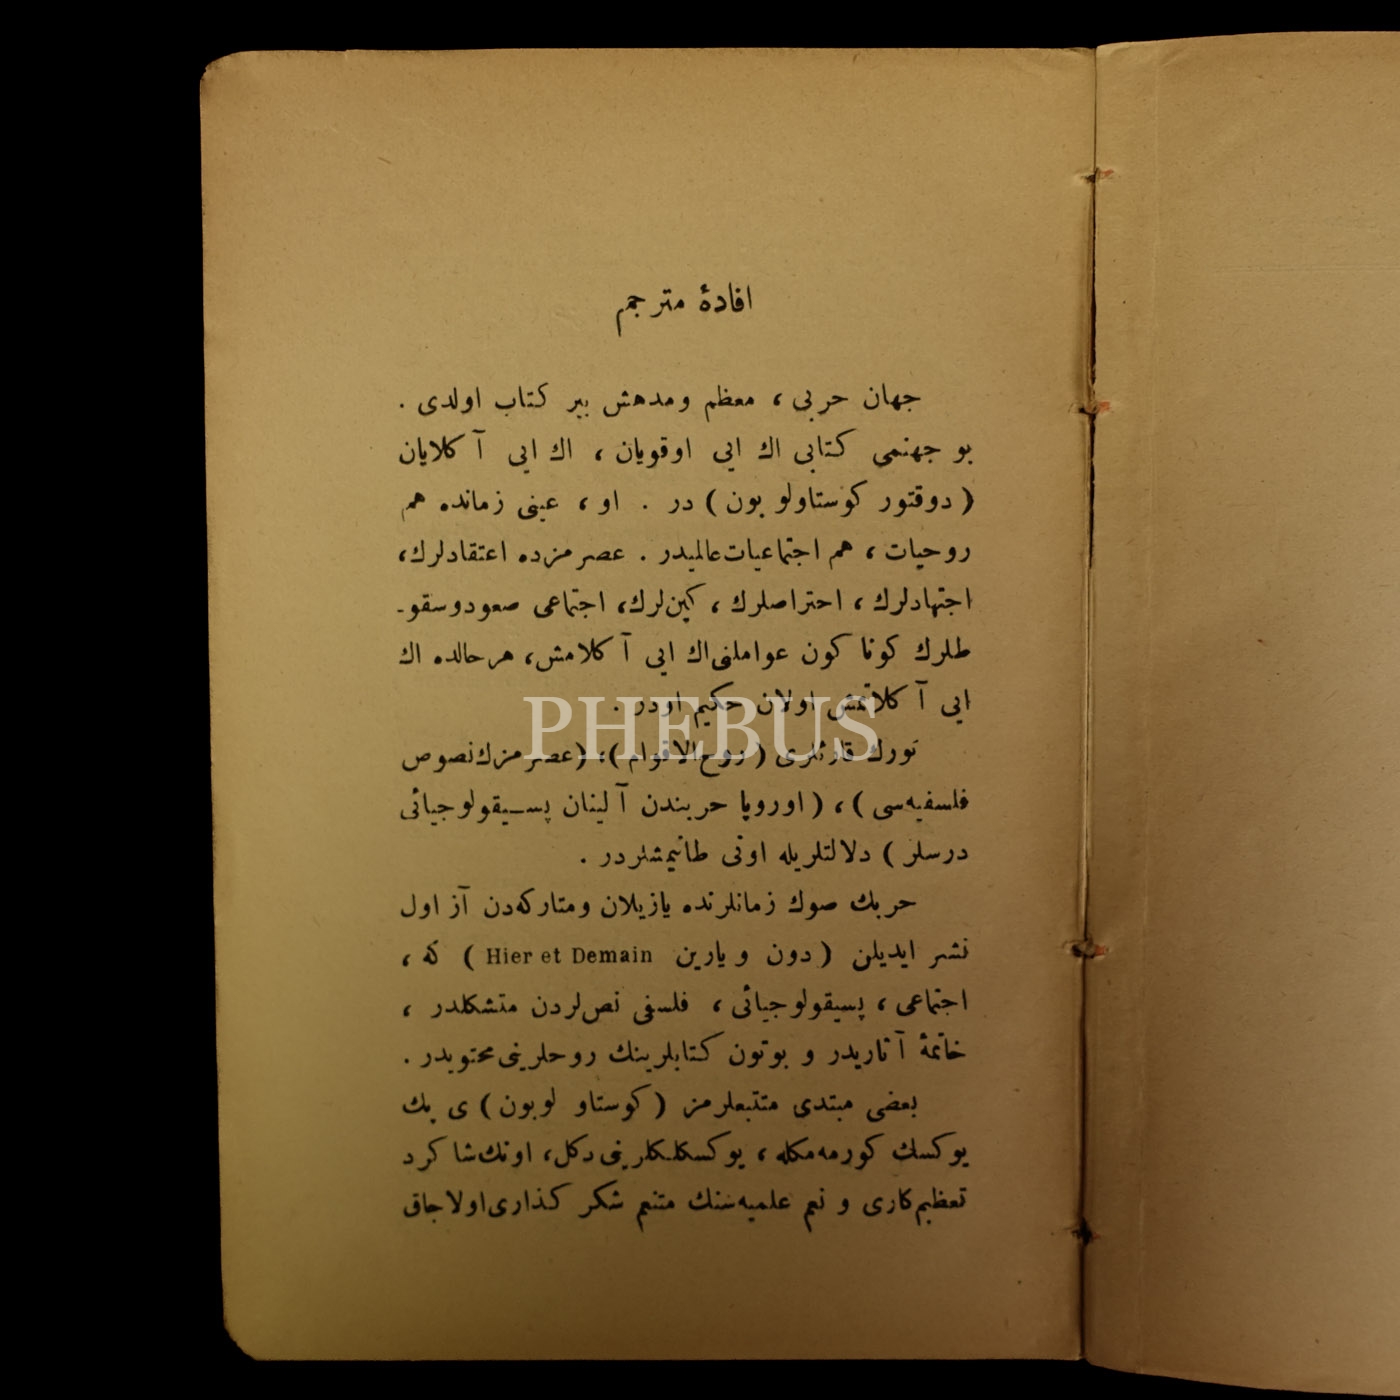 افادهٔ مترجم
جهان حربی ، معظم ومدهش بر كتاب اولدی .
بو جهنمی كتابی اك ایی اوقویان ، اك ایی آ كلایان
( دوقتور كوستاولو بون ) در . او ، عینی زمانده هم
روحیات ، هم اجتماعیات عالمیدر . عصرمزده اعتقادلرك،
اجتهادلرك ، احتراصلرك ، كین‌لرك، اجتماعی صعودوسقو-
طلرك كونا كون عواملنی اك ایی آ كلامش، هرحالده اك
ایی آ كلاتمش اولان حكیم اودر .
PHEBUS
تورك قارئلری ( روح‌الاقوام )، ( عصرمزك نصوص
فلسفیه‌سی ) ، ( اوروپا حربندن آ لینان پسیقولوجیائی
درسلر ) دلالتلریله اونی طانیمشلردر .
حربك صوك زمانلرنده یازیلان ومتاركه‌دن آز اول
نشر ایدیلن ( دون و یارین Hier et Demain ) كه ،
اجتماعی ، پسیقولوجیائی ، فلسفی نص‌لردن متشكلدر ،
خاتمهٔ آ ثاریدر و بوتون كتابلرینك روحلرینی محتویدر .
بعضی مبتدی متتبعلرمز ( كوستاو لوبون ) ی پك
یوكسك كورمه‌مكله ، یوكسكلكلرینی دكل، اونك شا كرد
تعظیم‌كاری و نعم علمیه‌سنك متنعم شكر كذاری‌اولاجاق